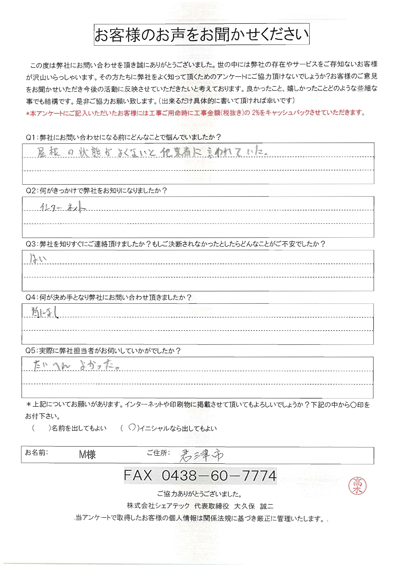 お客様のお声をお聞かせください
この度は弊社にお問い合わせを頂き誠にありがとうございました。世の中には弊社の存在やサービスをご存知ないお客様
が沢山いらっしゃいます。その方たちに弊社をよく知って頂くためのアンケートにご協力頂けないでしょうか?お客様のご意見
をお聞かせいただき今後の活動に反映させていただきたいと考えております。良かったこと、嬉しかったことどのような些細な
事でも結構です。是非ご協力お願い致します。(出来るだけ具体的に書いて頂ければ幸いです)
*本アンケートにご記入いただいたお客様には工事ご用命時に工事金額(税抜き)の2%をキャッシュバックさせていただきます。
Q1:弊社にお問い合わせになる前にどんなことで悩んでいましたか?
屋根の状態がよくないと他業者に言われていた。
Q2:何がきっかけで弊社をお知りになりましたか?
インターネット
Q3:弊社を知りすぐにご連絡頂けましたか?もしご決断されなかったとしたらどんなことがご不安でしたか?
はい
Q4:何が決め手となり弊社にお問い合わせ頂きましたか?
特になし
Q5:実際に弊社担当者がお伺いしていかがでしたか?
たいへんよかった。
*上記についてお願いがあります。インターネットや印刷物に掲載させて頂いてもよろしいでしょうか?下記の中から〇印を
お付下さい。
( )名前を出してもよい (〇)イニシャルなら出してもよい
お名前: M様 ご住所: 君津市
FAX 0438-60-7774
ご協力ありがとうございました。
株式会社シェアテック 代表取締役 大久保 誠二
当アンケートで取得したお客様の個人情報は関係法規に基づき厳正に管理いたします。